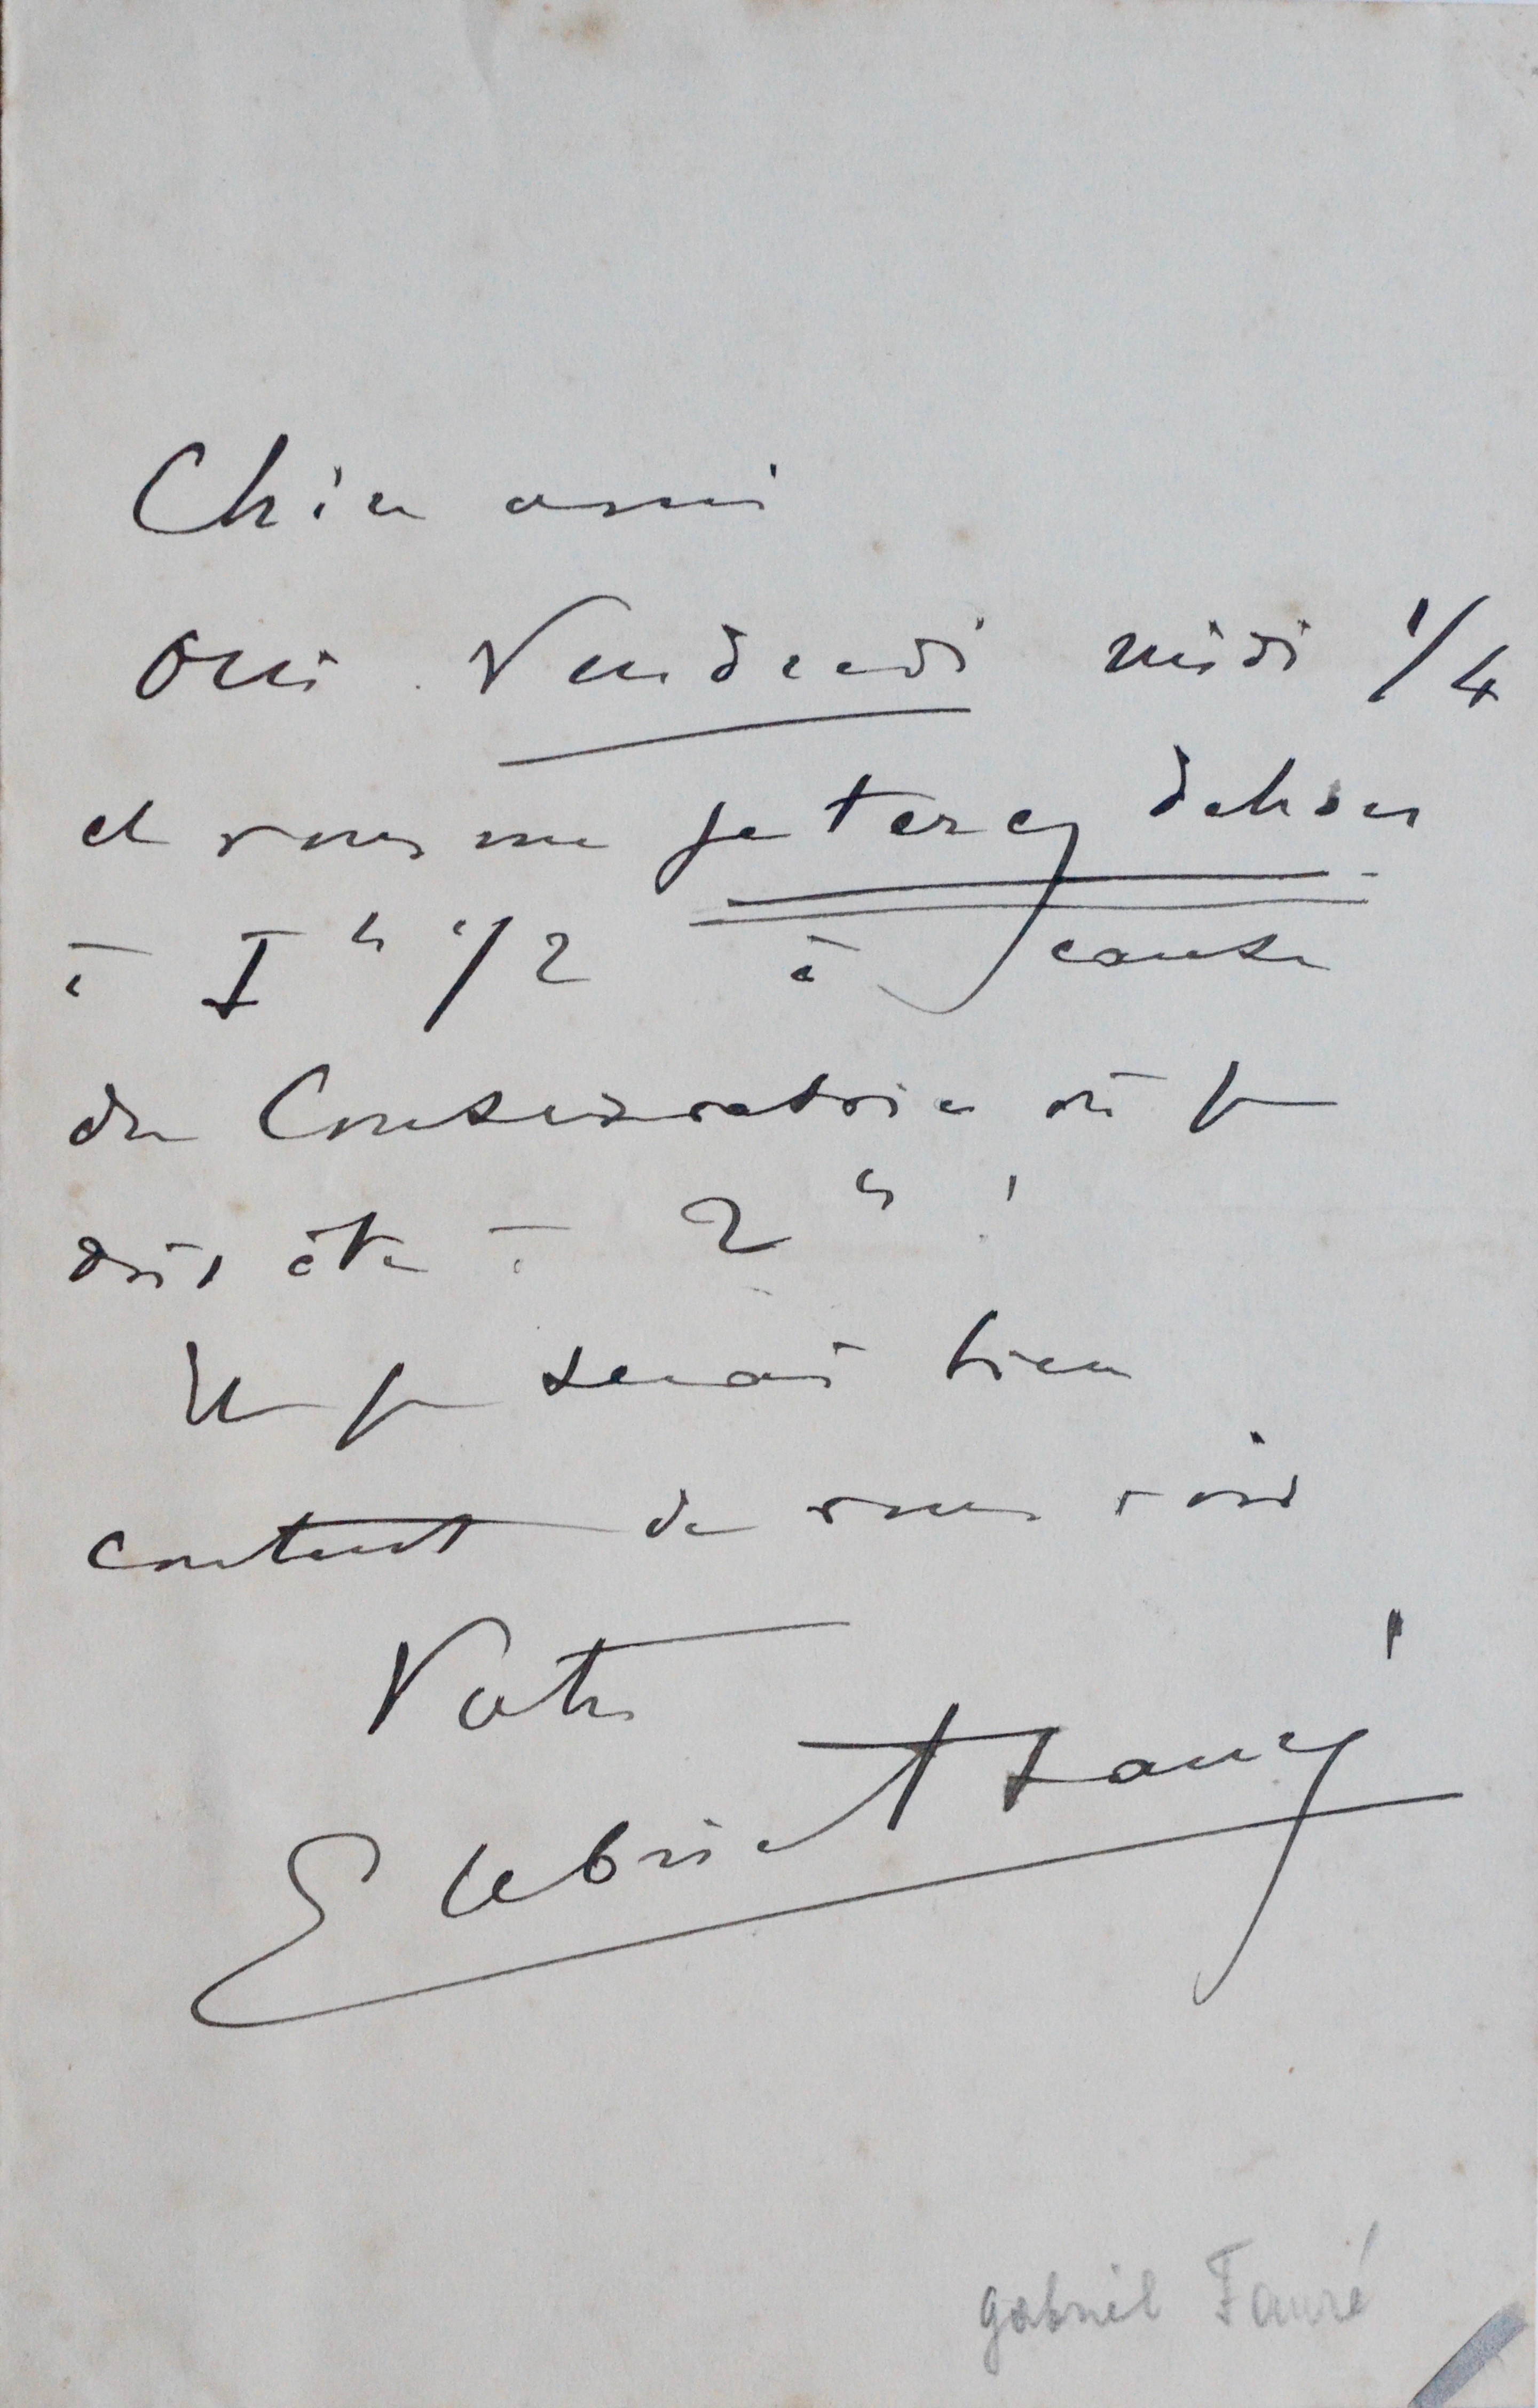 Cher ami
Oui Vendredi midi 1/4
et vous me jeterez dehors
à 1h 1/2 à cause
du Conservatoire où je
dois être à 2h !
Et je serai bien
content de vous voir
Votre
Gabriel Fauré
gabriel Fauré